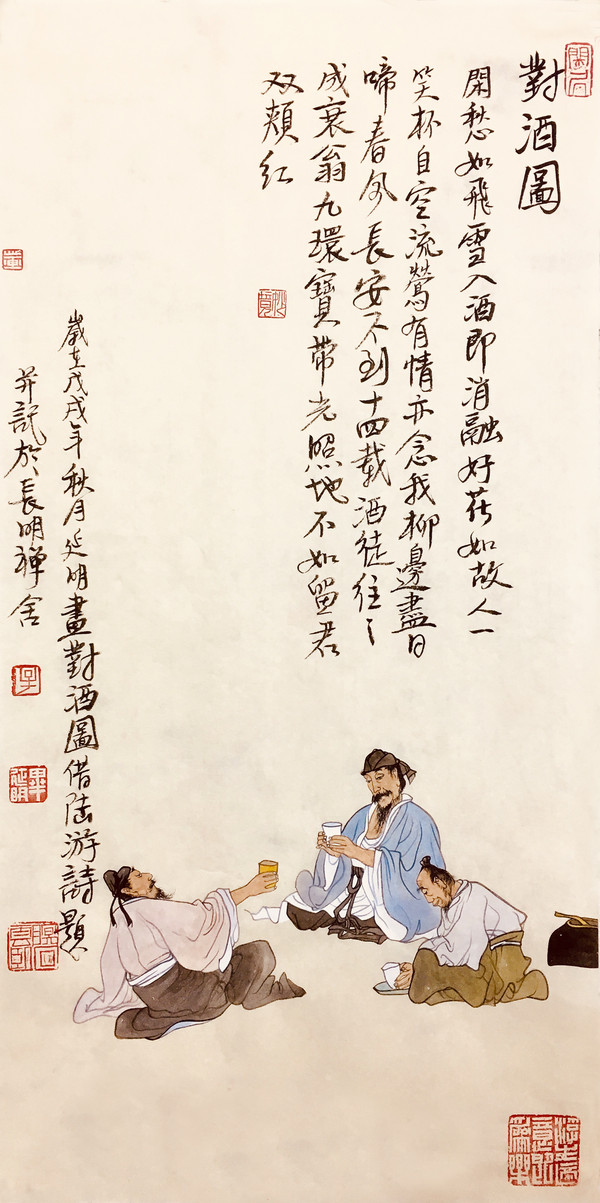 對酒圖
閑愁如飛雪入酒即消融好花如故人一
笑杯自空流鶯有情亦念我柳邊盡日
啼春风長安不到十四載酒徒往々
成衰翁九環寶帶光照地不如留君
双頰红
歲在戊戌年秋月延明畫對酒圖借陆游詩題
并記於長明禅舍
畢延明